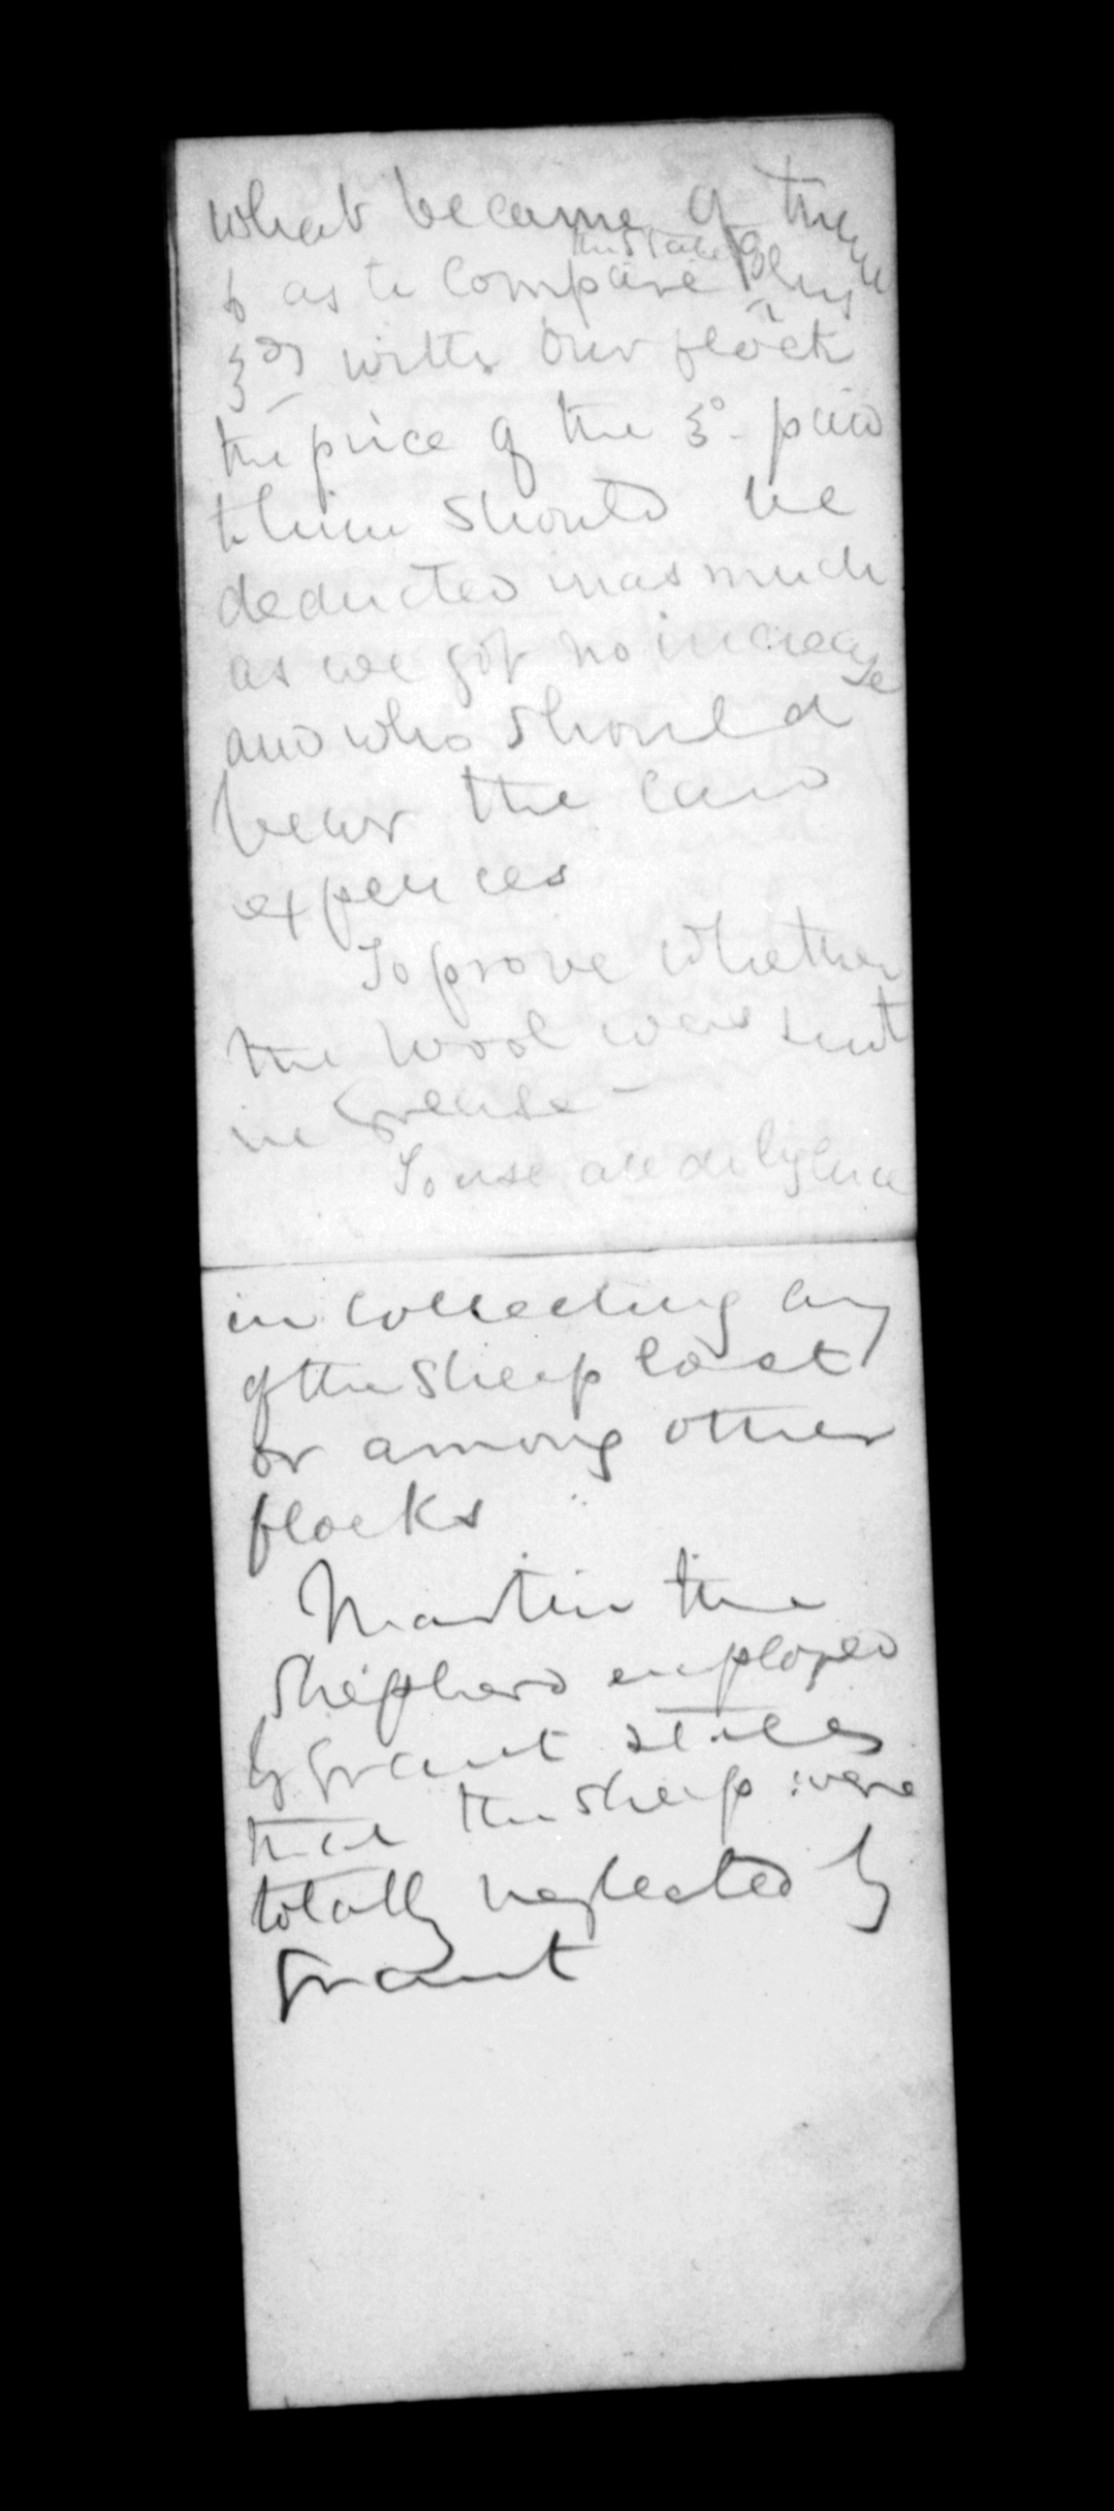 what became of them
the state of
& as to compare this
with our flock
the price of the paid
him should be
deducted inasmuch
as we got no increase
and who should
bear the said
expences
To prove whether
the wool was sent
in Grease -
To use all diligence
in collecting any
of the sheep lost
or among other
flocks
Martin the
Shepherd employed
by Grant states
that the sheep were
totally neglected by
Grant